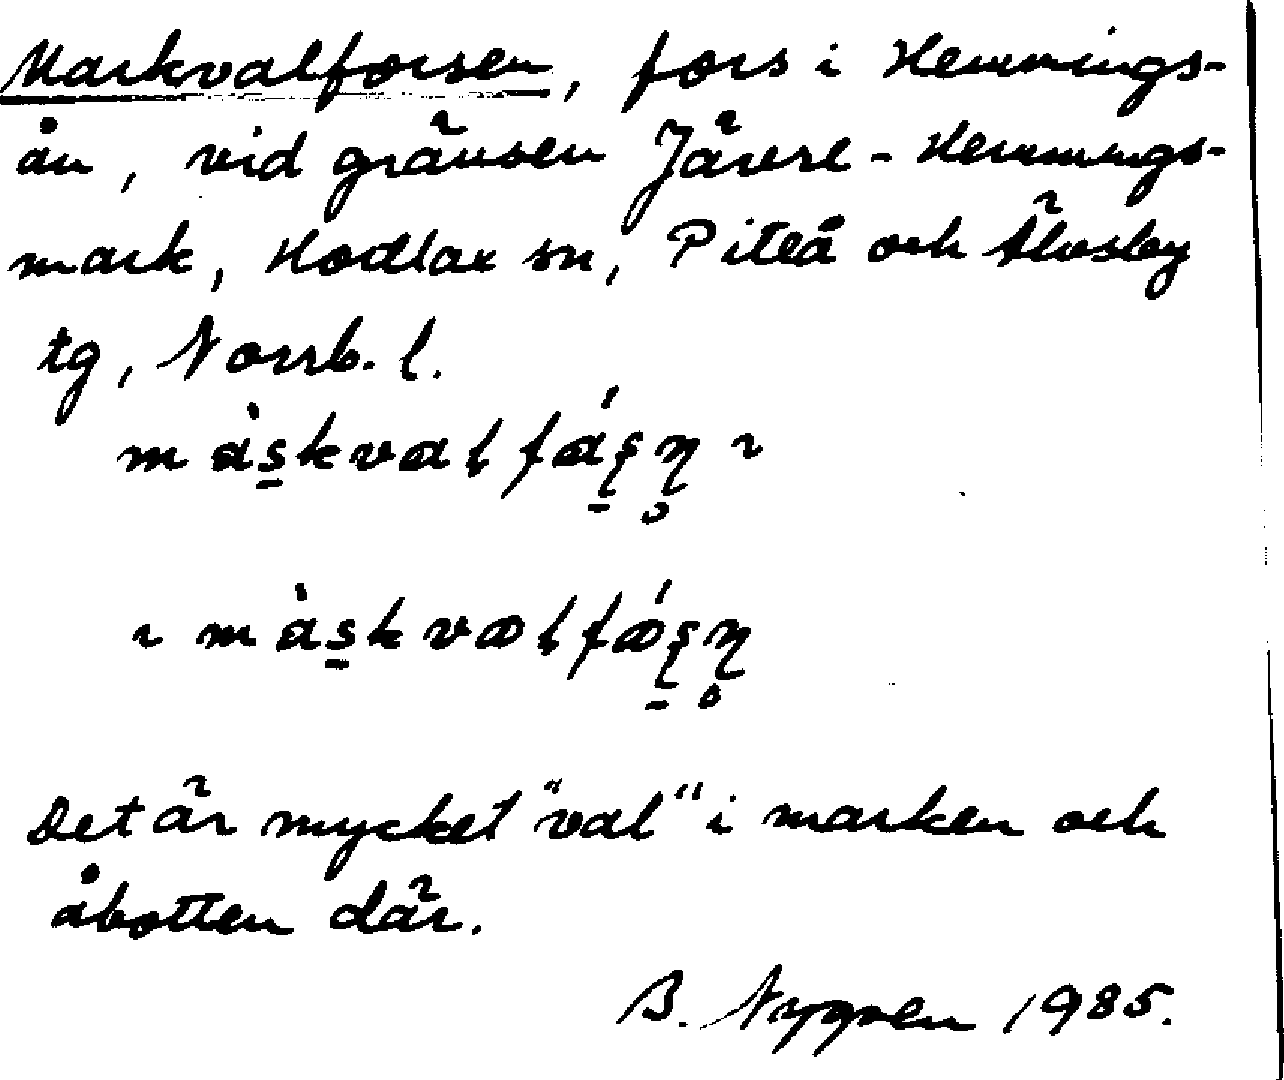 Markvalforsen, fors i Hemmings-
ån, vid gränsen Jävre - Hemmings-
mark, Hortlax sn, Piteå och Älvsby
tg, Norrb. l.
màs̠kvalfás̠n̥ ~
~ màs̠kvælfǽs̠n̥
Det är mycket "val" i marken och
åbotten där.
B. Nygren 1985.